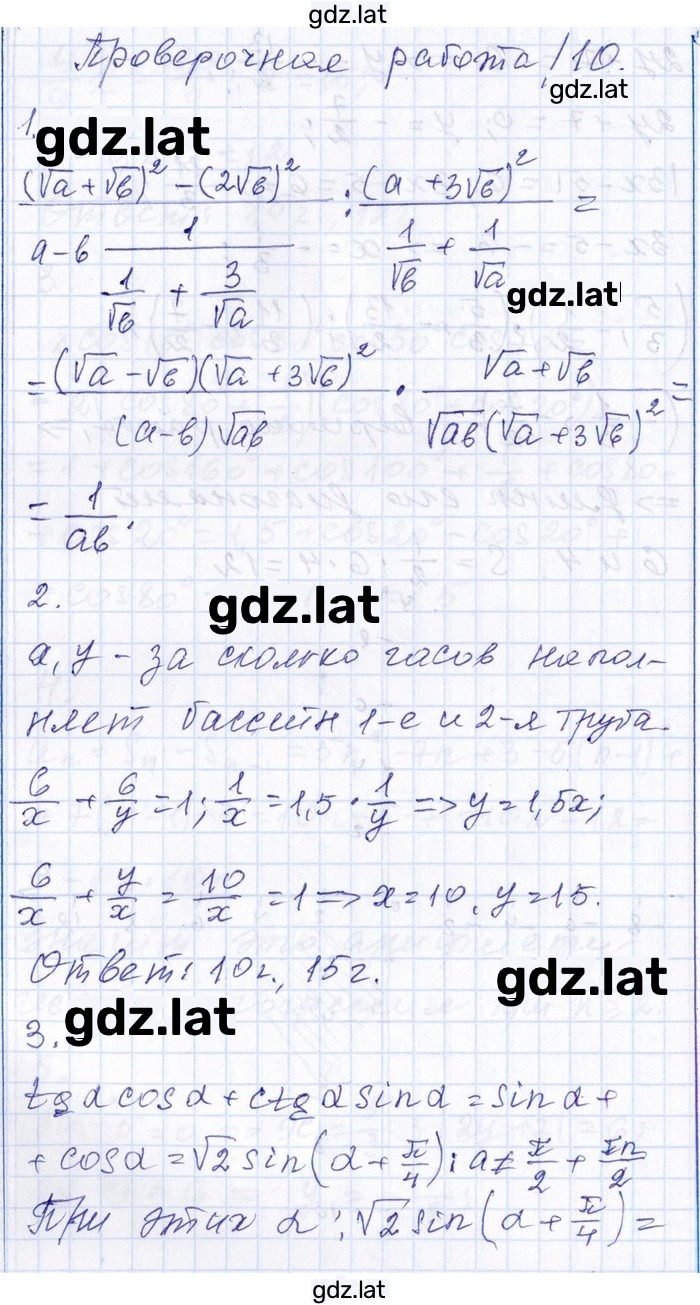 gdz.lat
Проверочная работа /10.
gdz.lat
1.
gdz.lat
((√a + √b)² − (2√b)²)/(a−b) 1/(1/√b + 3/√a) : (a + 3√b)²/(1/√b + 1/√a) =
gdz.lat
= (√a − √b)(√a + 3√b)²/((a−b)√ab) · (√a + √b)/(√ab(√a + 3√b)²) =
= 1/ab.
2.
gdz.lat
x, y – за сколько часов напол-
няет бассейн 1-е и 2-я труба.
6/x + 6/y = 1; 1/x = 1,5 · 1/y => y = 1,5x;
6/x + y/x = 10/x = 1 => x = 10, y = 15.
Ответ: 10г., 15г.
gdz.lat
3.
gdz.lat
tg α cos α + ctg α sin α = sin α +
+ cos α = √2 sin(α + π/4); a ≠ π/2 + πn/2
При этих α: √2 sin(α + π/4) =
gdz.lat